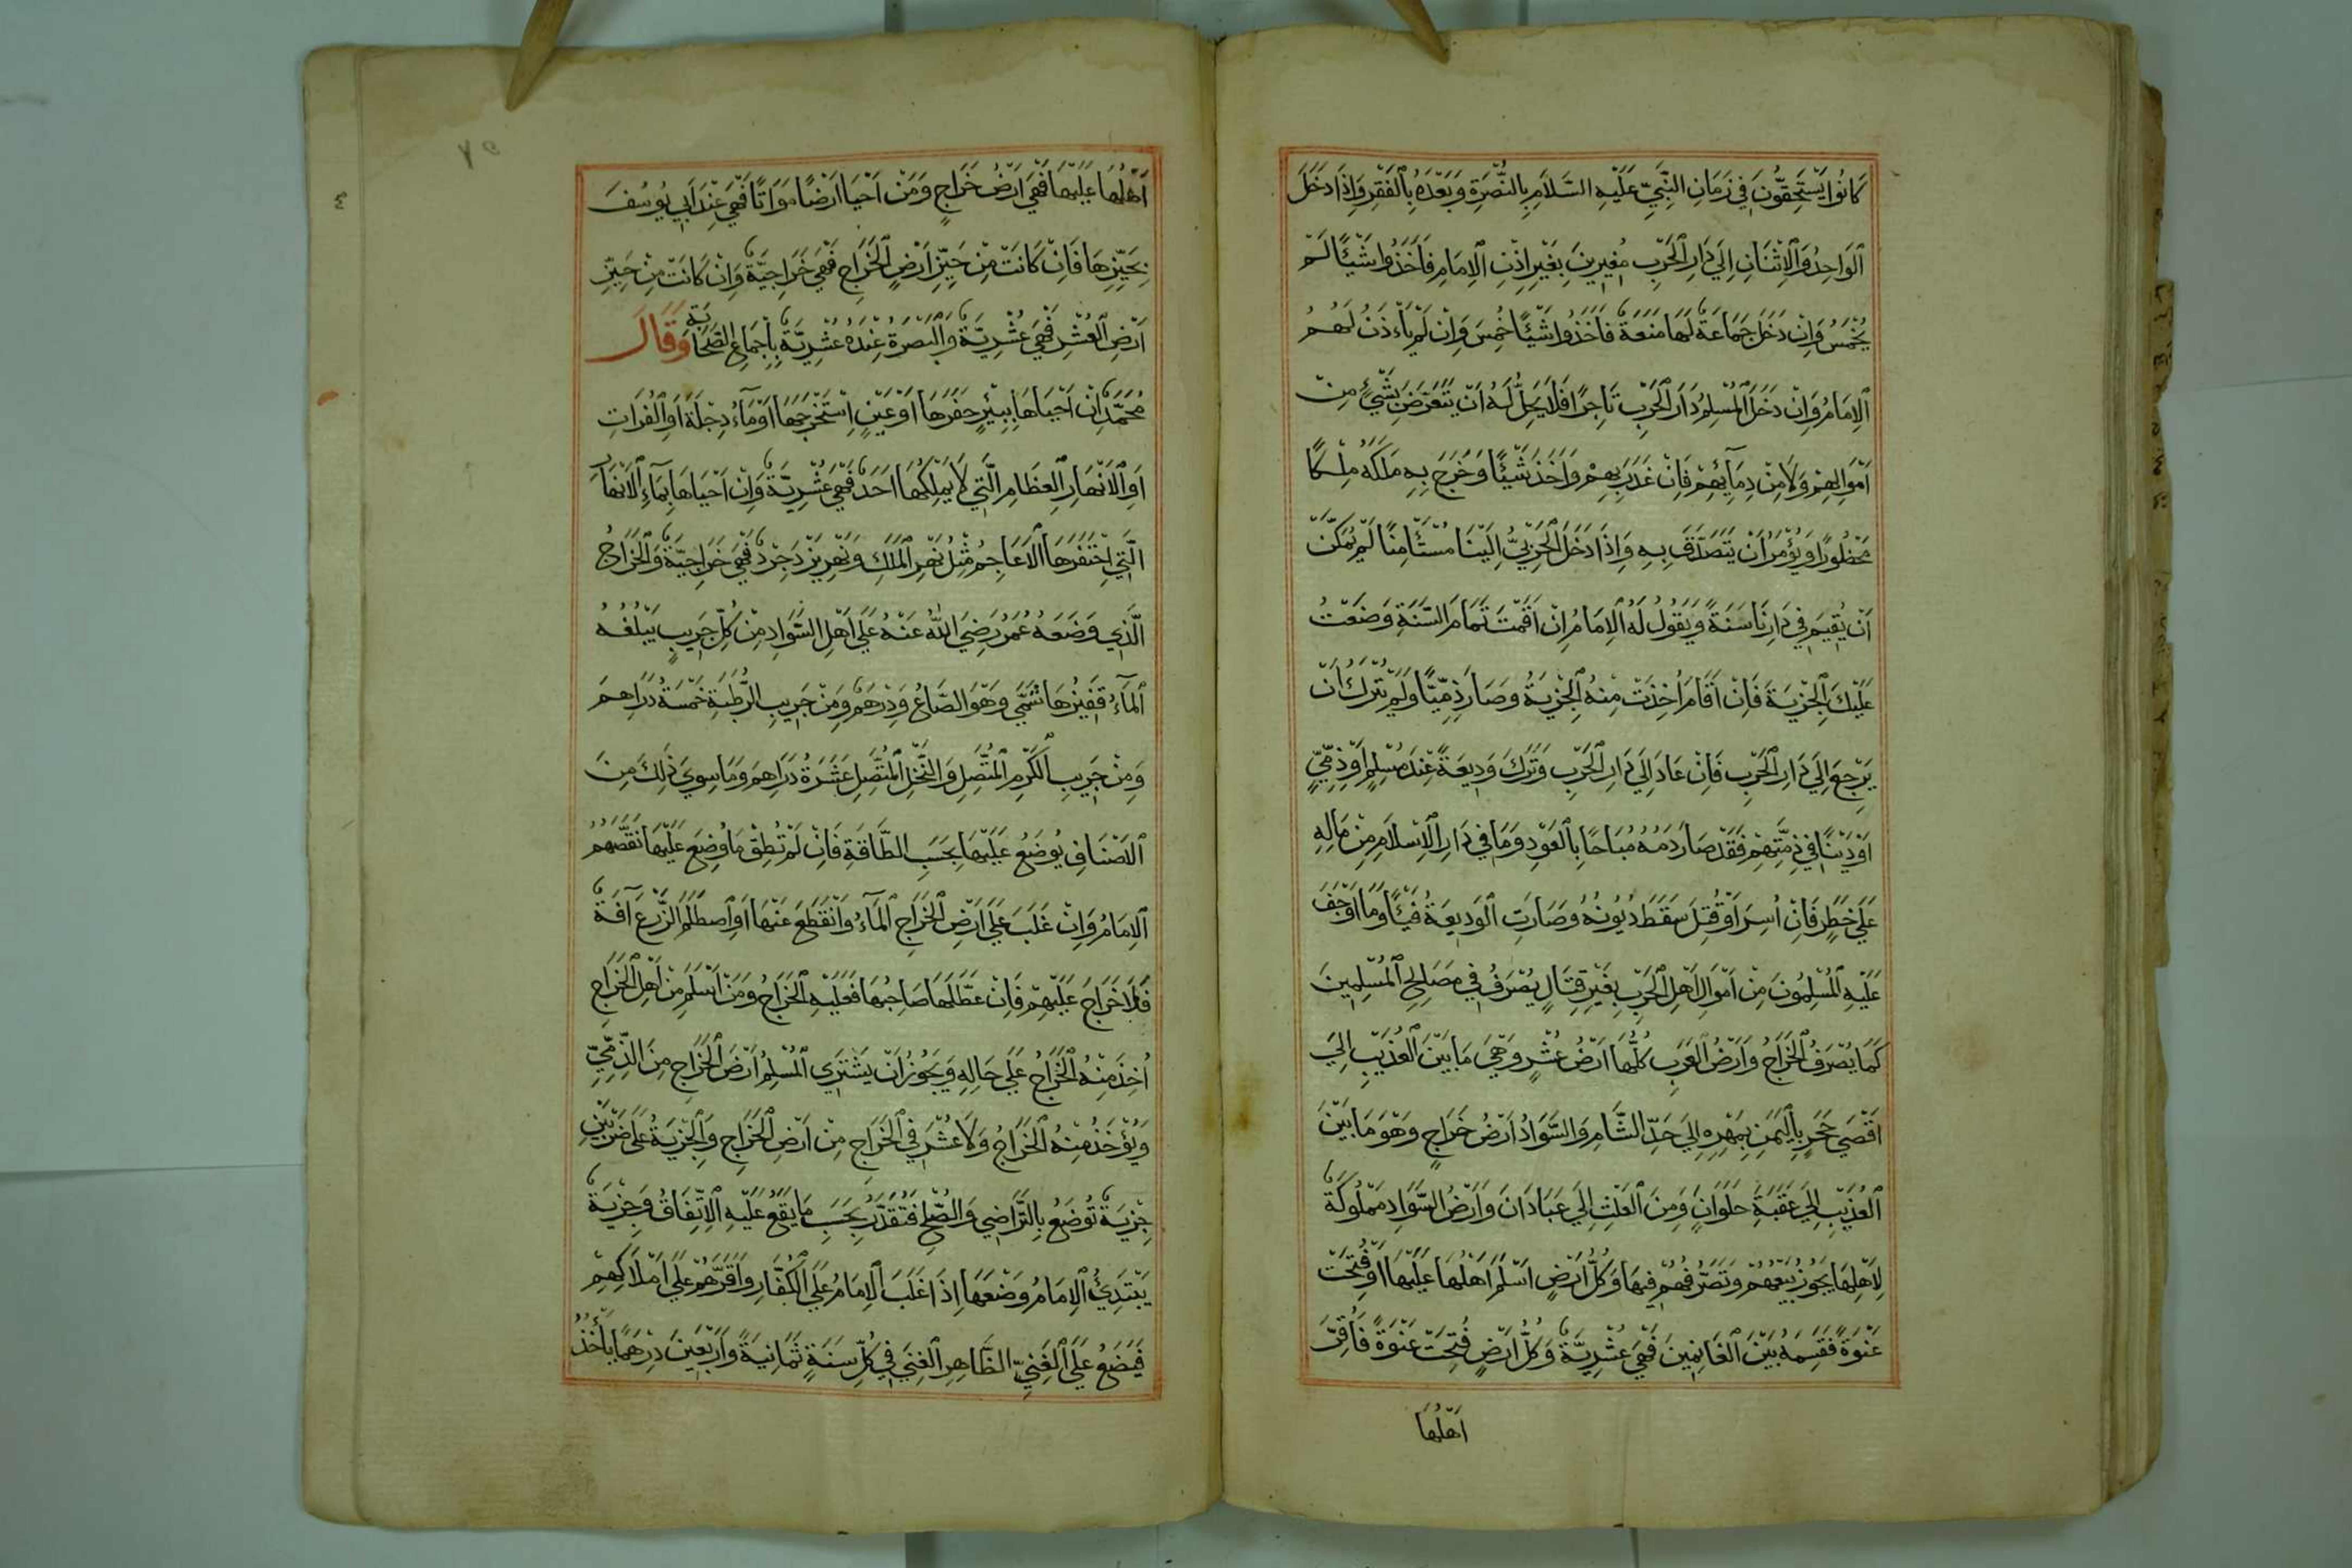 كَانُوا يَسْتَحِقُّونَ فِي زَمَانِ النَّبِيِّ عَلَيْهِ السَّلَامِ بِالنُّصْرَةِ وَبَعْدَهُ بِالْفَقْرِ وَإِذَا دَخَلَ
الْوَاحِدُ وَالْاِثْنَانِ إِلَي دَارِ الْحَرْبِ مُغِيرِينَ بِغَيْرِ إِذْنِ الْاِمَامِ فَأَخَذُوا شَيْئًا لَمْ
يُخْمَسْ وَإِنْ دَخَلَ جَمَاعَةٌ لَهَا مَنَعَةٌ فَأَخَذُوا شَيْئًا خُمِسَ وَإِنْ لَمْ يَأْذَنْ لَهُمُ
الْاِمَامُ وَإِنْ دَخَلَ الْمُسْلِمُ دَارَ الْحَرْبِ تَاجِرًا فَلَا يَحِلُّ لَهُ أَنْ يَتَعَرَّضَ بِشَيْءٍ مِنْ
أَمْوَالِهِمْ وَلَا مِنْ دِمَآئِهِمْ فَإِنْ غَدَرَ بِهِمْ وَأَخَذَ شَيْئًا وَخَرَجَ بِهِ مَلَكَهُ مِلْكًا
مَحْظُورًا وَيُؤْمَرُ أَنْ يَتَصَدَّقَ بِهِ وَإِذَا دَخَلَ الْحَرْبِيُّ إِلَيْنَا مُسْتَأْمِنًا لَمْ يُمَكَّنْ
أَنْ يُقِيمَ فِي دَارِنَا سَنَةً وَيَقُولُ لَهُ الْاِمَامُ إِنْ أَقَمْتَ تَمَامَ السَّنَةِ وَضَعْتُ
عَلَيْكَ الْجِزْيَةَ فَإِنْ أَقَامَ أُخِذَتْ مِنْهُ الْجِزْيَةُ وَصَارَ ذِمِّيًّا وَلَمْ يُتْرَكْ أَنْ
يَرْجِعَ إِلَي دَارِ الْحَرْبِ فَإِنْ عَادَ إِلَي دَارِ الْحَرْبِ وَتَرَكَ وَدِيعَةً عِنْدَ مُسْلِمٍ أَوْ ذِمِّيٍّ
أَوْ دَيْنًا فِي ذِمَّتِهِمْ فَقَدْ صَارَ دَمُهُ مُبَاحًا بِالْعَوْدِ وَمَا فِي دَارِ الْاِسْلَامِ مِنْ مَالِهِ
عَلَي خَطَرٍ فَإِنْ أُسِرَ أَوْ قُتِلَ سَقَطَ دُيُونُهُ وَصَارَتِ الْوَدِيعَةُ فَيْئًا وَمَا أَوْجَفَ
عَلَيْهِ الْمُسْلِمُونَ مِنْ أَمْوَالِ أَهْلِ الْحَرْبِ بِغَيْرِ قِتَالٍ يُصْرَفُ فِي مَصَالِحِ الْمُسْلِمِينَ
كَمَا يُصْرَفُ الْخَرَاجُ وَأَرْضُ الْعَرَبِ كُلُّهَا أَرْضُ عُشْرٍ وَهْيَ مَا بَيْنَ الْعُذَيْبِ إِلَيَ
أَقْصَي حَجَرٍ بِالْيَمَنِ بِمَهْرِهِ إِلَيَ حَدِّ الشَّامِ وَالسَّوَادُ أَرْضُ خَرَاجٍ وَهْوَ مَا بَيْنَ
الْعُذَيْبِ إِلَيَ عَقَبَةِ حَلَوَانٍ وَمِنَ الْعَلَثِ إِلَيَ عَبَادَانَ وَأَرْضُ السَّوَادِ مَمْلُوكَةٌ
لِاَهْلِهَا يَجُوزُ بَيْعُهُمْ وَتَصَرُّفُهُمْ فِيهَا وَكُلُّ أَرْضٍ أَسْلَمَ أَهْلُهَا عَلَيْهَا أَوْ فُتِحَتْ
عَنْوَةً فَقَسِمَهُ بَيْنَ الْغَانِمِينَ فَهْيَ عُشْرِيَّةٌ وَكُلُّ أَرْضٍ فُتِحَتْ عَنْوَةً فَأُقِرَّ
اَهْلُهَا
اَهْلُهَا عَلَيْهَا فَهْيَ اَرْضُ خَرَاجٍ وَمَنْ اَحْيَا اَرْضًا مَوَاتًا فَهْيَ عِنْدَ اَبِي يُوسُفَ
بِحَيِّزِهَا فَاِنْ كَانَتْ مِنْ حَيِّزِ اَرْضِ الْخَرَاجِ فَهْيَ خَرَاجِيَّةٌ وَاِنْ كَانَتْ مِنْ حَيِّزِ
اَرْضِ الْعُشْرِ فَهْيَ عُشْرِيَّةٌ وَالْبَصْرَةُ عِنْدَهُ عُشْرِيَّةٌ بِاِجْمَاعِ الصَّحَابَةِ وَقَالَ
مُحَمَّدٌ اِنْ اَحْيَاهَا بِبِئْرٍ حَفَرَهَا اَوْ عَيْنٍ اِسْتَخْرَجَهَا اَوْ مَآءِ دِجْلَةَ اَوِ الْفُرَاتِ
اَوِ الْاَنْهَارِ الْعِظَامِ الَّتِي لَا يَمْلِكُهَا اَحَدٌ فَهْيَ عُشْرِيَّةٌ وَاِنْ اَحْيَاهَا بِمَآءِ الْاَنْهَارِ
الَّتِي اِحْتَفَرَهَا الْاَعَاجِمُ مِثْلُ نَهْرِ الْمَلَكِ وَنَهْرِ يَزْدَجِرْدَ فَهْيَ خَرَاجِيَّةٌ وَالْخَرَاجُ
الَّذِي وَضَعَهُ عُمَرُ رَضِيَ اللّٰهُ عَنْهُ عَلَي اَهْلِ السَّوَادِ مِنْ كُلِّ جَرِيبٍ يَبْلُغُهُ
الْمَآءُ قَفِيزُهَا شَمِيٌّ وَهْوَ الصَّاعُ وَدِرْهَمٌ وَمِنْ جَرِيبِ الرُّطْبَةِ خَمْسَةُ دَرَاهِمَ
وَمِنْ جَرِيبِ الْكَرْمِ الْمُتَّصِلِ وَالنَّخْلِ الْمُتَّصِلِ عَشَرَةُ دَرَاهِمَ وَمَا سِوَيَ ذَلِكَ مِنَ
الْاَصْنَافِ يُوضَعُ عَلَيْهَا بِحَسَبِ الطَّاقَةِ فَاِنْ لَمْ تُطِقْ مَا وُضِعَ عَلَيْهَا نَقَصَّهُمُ
الْاِمَامُ وَاِنْ غَلَبَ عَلَيَ اَرْضِ الْخَرَاجِ الْمَآءُ وَاَنْقَطَعَ عَنْهَا اَوِ اصْطَلَمَ الزَّرْعَ آفَةٌ
فَلَا خَرَاجَ عَلَيْهِمْ فَاِنْ عَطَّلَهَا صَاحِبُهَا فَعَلَيْهِ الْخَرَاجُ وَمَنْ اَسْلَمَ مِنْ اَهْلِ الْخَرَاجِ
اُخِذَ مِنْهُ الْخَرَاجُ عَلَي حَالِهِ وَيَجُوزُ اَنْ يَشْتَرِي الْمُسْلِمُ اَرْضَ الْخَرَاجِ مِنَ الذِّمِّيِّ
وَيُؤْخَذُ مِنْهُ الْخَرَاجُ وَلَا عُشْرَ فِي الْخَرَاجِ مِنْ اَرْضِ الْخَرَاجِ وَالْجِزْيَةُ عَلَي ضَرْبَيْنِ
جِزْيَةٌ تُوضَعُ بِالتَّرَاضِي وَالصُّلْحِ فَتُقَدَّرُ بِحَسَبِ مَا يَقَعُ عَلَيْهِ الْاِتِّفَاقُ وَجِزْيَةٌ
يَبْتَدِيُ الْاِمَامُ وَضْعَهَا اِذَا غَلَبَ الْاِمَامُ عَلَي الْكُفَّارِ وَاَقَرَّهُمْ عَلَي اَمْلَاكِهِمْ
فَيَضَعُ عَلَيَ الْغَنِيِّ الظَّاهِرِ الْغِنَي فِي كُلِّ سَنَةٍ ثَمَانِيَةً وَاَرْبَعِينَ دِرْهَمًا يَأْخُذُ